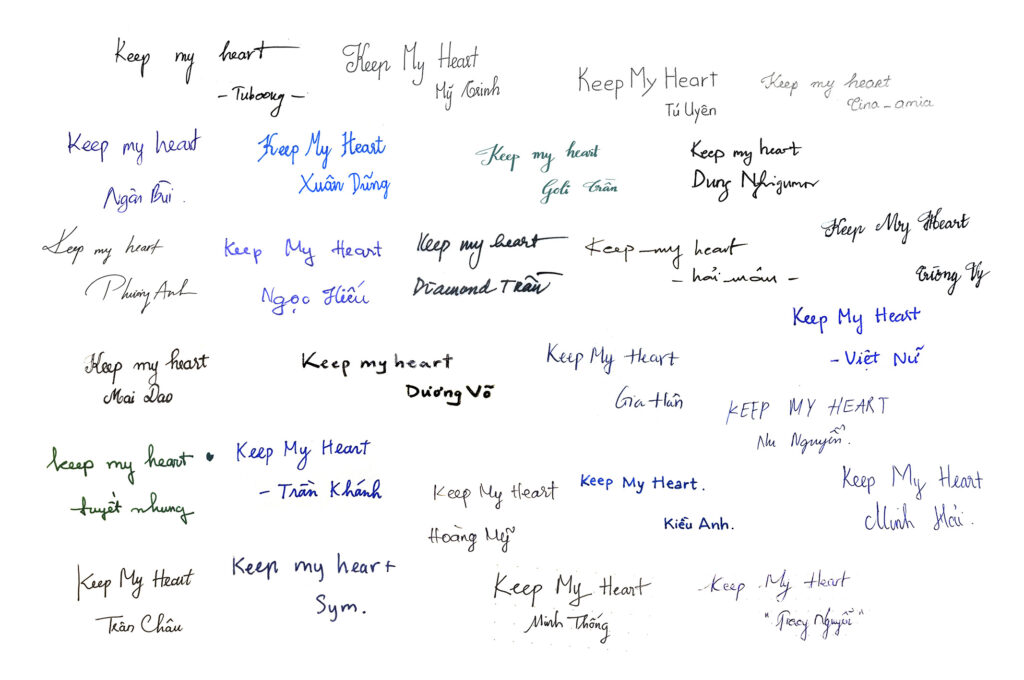 Keep my heart
- Tuboong -
Keep My Heart
Mỹ Trinh
Keep My Heart
Tú Uyên
Keep my heart
Tina - amia
Keep my heart
Ngân Bùi .
Keep My Heart
Xuân Dũng
Keep my heart
Goli Trần
Keep my heart
Dung
Keep my heart
Phương Anh
Keep My Heart
Ngọc Hiếu
Keep my heart
Diamond Trần
Keep my heart
- hải mám -
Keep My Heart
Trường Vy
Keep My Heart
- Việt Nữ
Keep my heart
Mai Dao
Keep my heart
Dương Võ
Keep My Heart
Gia Hân
KEEP MY HEART
Nu Nguyễn.
keep my heart
tuyết nhung
Keep My Heart
- Trần Khánh
Keep My Heart
Hoàng Mỹ
Keep My Heart.
Kiều Anh.
Keep My Heart
Minh Hải.
Keep My Heart
Trân Châu
Keep my heart
Sym.
Keep My Heart
Minh Thống
Keep My Heart
"Tracy Nguyễn"